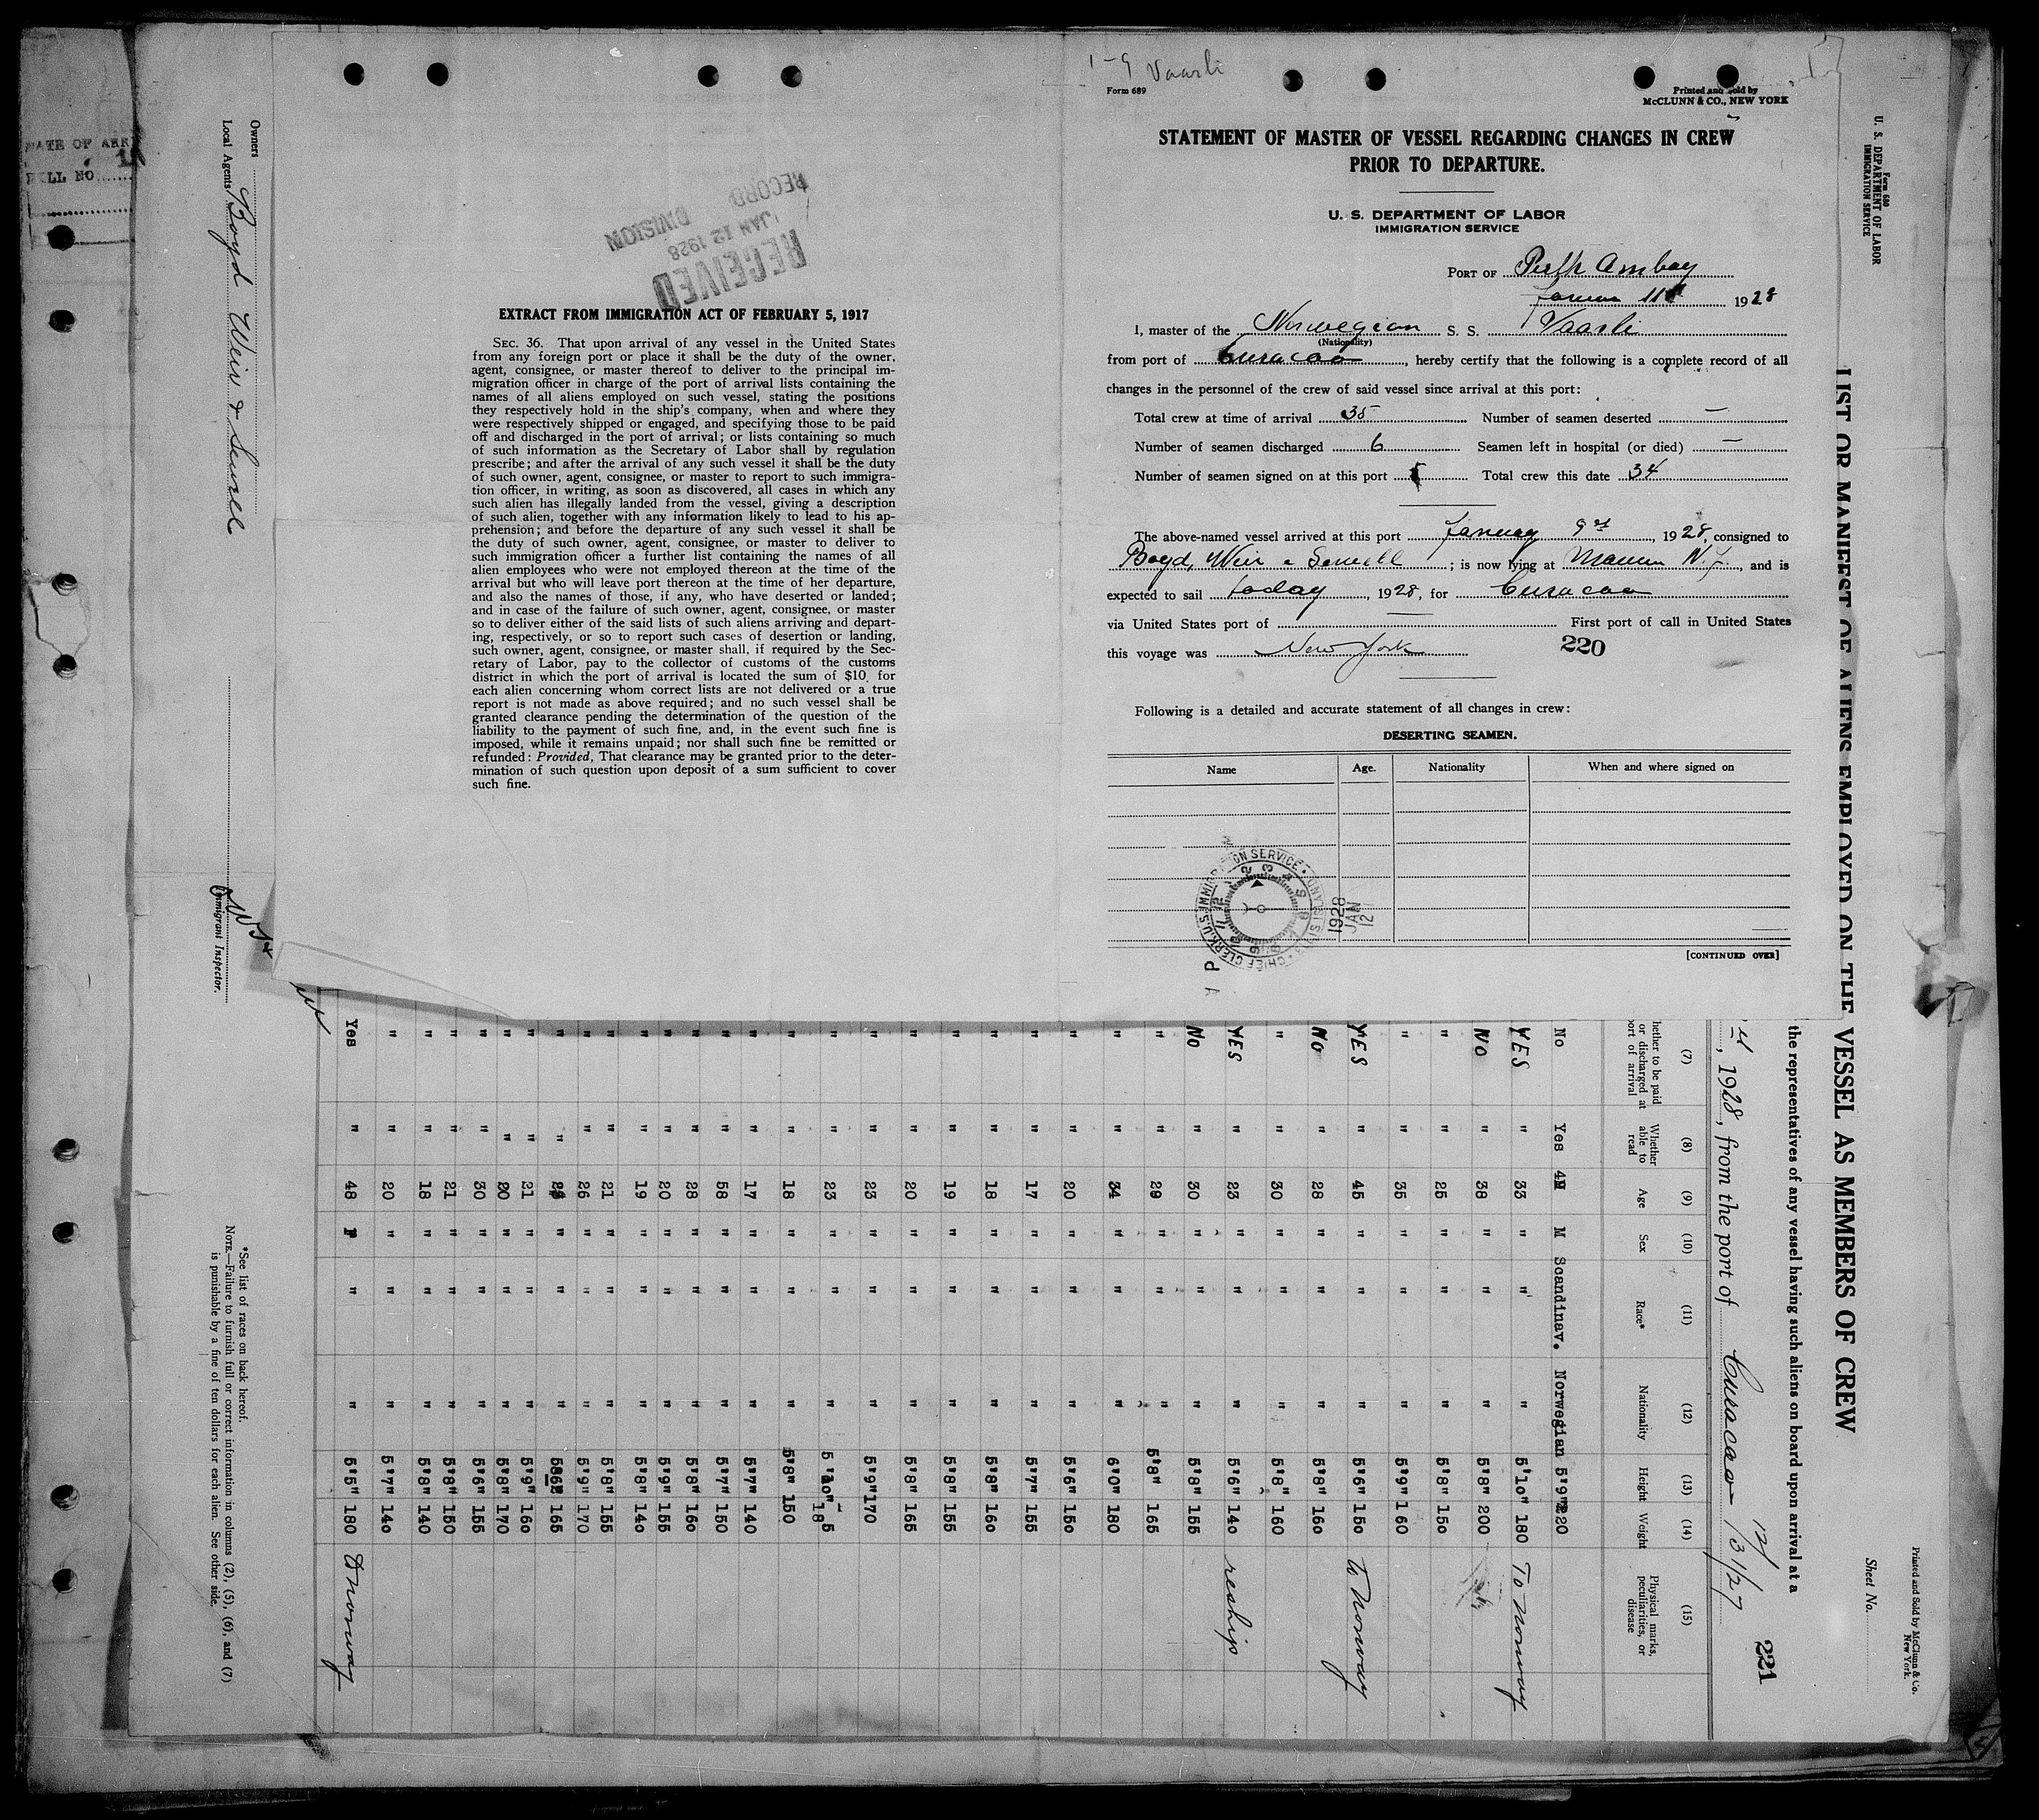 1-9 Vaarli
Form 689
Printed and Sold by
McCLUNN & CO., NEW YORK
STATEMENT OF MASTER OF VESSEL REGARDING CHANGES IN CREW
PRIOR TO DEPARTURE.
U. S. DEPARTMENT OF LABOR
IMMIGRATION SERVICE
PORT OF Perth Amboy
11 1928
I, master of the Norwegian S. S. Vaarli
(Nationality)
from port of Curacao, hereby certify that the following is a complete record of all
changes in the personnel of the crew of said vessel since arrival at this port:
Total crew at time of arrival 35 Number of seamen deserted —
Number of seamen discharged 6 Seamen left in hospital (or died) —
Number of seamen signed on at this port Total crew this date 34
The above-named vessel arrived at this port January 9 1928, consigned to
Boyd, Weir & Sewell; is now lying at N. J., and is
expected to sail today, 1928, for Curacao
via United States port of First port of call in United States
this voyage was New York
220
Following is a detailed and accurate statement of all changes in crew:
DESERTING SEAMEN.
Name Age. Nationality When and where signed on
[CONTINUED OVER]
CHIEF CLERK U.S. IMMIGRATION SERVICE
1928
JAN
12
RECEIVED
JAN 12 1928
RECORD DIVISION
EXTRACT FROM IMMIGRATION ACT OF FEBRUARY 5, 1917
SEC. 36. That upon arrival of any vessel in the United States
from any foreign port or place it shall be the duty of the owner,
agent, consignee, or master thereof to deliver to the principal im-
migration officer in charge of the port of arrival lists containing the
names of all aliens employed on such vessel, stating the positions
they respectively hold in the ship's company, when and where they
were respectively shipped or engaged, and specifying those to be paid
off and discharged in the port of arrival; or lists containing so much
of such information as the Secretary of Labor shall by regulation
prescribe; and after the arrival of any such vessel it shall be the duty
of such owner, agent, consignee, or master to report to such immigra-
tion officer, in writing, as soon as discovered, all cases in which any
such alien has illegally landed from the vessel, giving a description
of such alien, together with any information likely to lead to his ap-
prehension; and before the departure of any such vessel it shall be
the duty of such owner, agent, consignee, or master to deliver to
such immigration officer a further list containing the names of all
alien employees who were not employed thereon at the time of the
arrival but who will leave port thereon at the time of her departure,
and also the names of those, if any, who have deserted or landed;
and in case of the failure of such owner, agent, consignee, or master
so to deliver either of the said lists of such aliens arriving and depart-
ing, respectively, or so to report such cases of desertion or landing,
such owner, agent, consignee, or master shall, if required by the Sec-
retary of Labor, pay to the collector of customs of the customs
district in which the port of arrival is located the sum of $10 for
each alien concerning whom correct lists are not delivered or a true
report is not made as above required; and no such vessel shall be
granted clearance pending the determination of the question of the
liability to the payment of such fine, and, in the event such fine is
imposed, while it remains unpaid; nor shall such fine be remitted or
refunded: Provided, That clearance may be granted prior to the deter-
mination of such question upon deposit of a sum sufficient to cover
such fine.
Form 680
U. S. DEPARTMENT OF LABOR
IMMIGRATION SERVICE
LIST OR MANIFEST OF ALIENS EMPLOYED ON THE VESSEL AS MEMBERS OF CREW
Sheet No.
Printed and Sold by McClunn & Co.
New York.
the representatives of any vessel having such aliens on board upon arrival at a
, 1928, from the port of Curacao 12/31/27
221
(7) (8) (9) (10) (11) (12) (13) (14) (15)
Whether able to read Age Sex Race* Nationality Height Weight Physical marks, peculiarities, or disease
No Yes M Scandinav. Norwegian 5'9" 220
YES " 33 " " " 5'10" 180 To Norway
NO " 38 " " " 5'8" 200
" " 25 " " " 5'8" 150
" " 35 " " " 5'9" 160
YES " 45 " " " 5'6" 150 To Norway
NO " 28 " " " 5'8" 160
" " 30 " " " 5'8" 160
YES " 23 " " " 5'6" 140 reship
NO " 30 " " " 5'8" 155
" " 29 " " " 5'8" 165
" " 34 " " " 6'0" 180
" " 20 " " " 5'6" 150
" " 17 " " " 5'7" 155
" " 18 " " " 5'8" 160
" " 19 " " " 5'8" 155
" " 20 " " " 5'8" 165
" " 23 " " " 5'9" 170
" " 23 " " " 5'10"
" " 18 " " " 5'8" 150
" " 17 " " " 5'7" 140
" " 58 " " " 5'7" 150
" " 28 " " " 5'8" 160
" " 20 " " " 5'9" 155
" " 19 " " " 5'8" 140
" " 21 " " " 5'8" 155
" " 26 " " " 5'9" 170
" " " " " 165
" " 21 " " " 5'9" 160
" " 20 " " " 5'8" 170
" " 30 " " " 5'6" 155
" " 21 " " " 5'8" 150
" " 18 " " " 5'8" 140
" " 20 " " " 5'7" 140
Yes " 48 F " " 5'5" 180 Norway
Owners
Local Agents Boyd Weir & Sewell
Immigrant Inspector.
*See list of races on back hereof.
NOTE.—Failure to furnish full or correct information in columns (2), (5), (6), and (7)
is punishable by a fine of ten dollars for each alien. See other side.